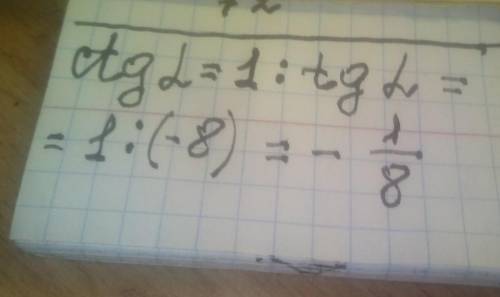 ctg α = 1 : tg α =
= 1 : (-8) = - 1/8